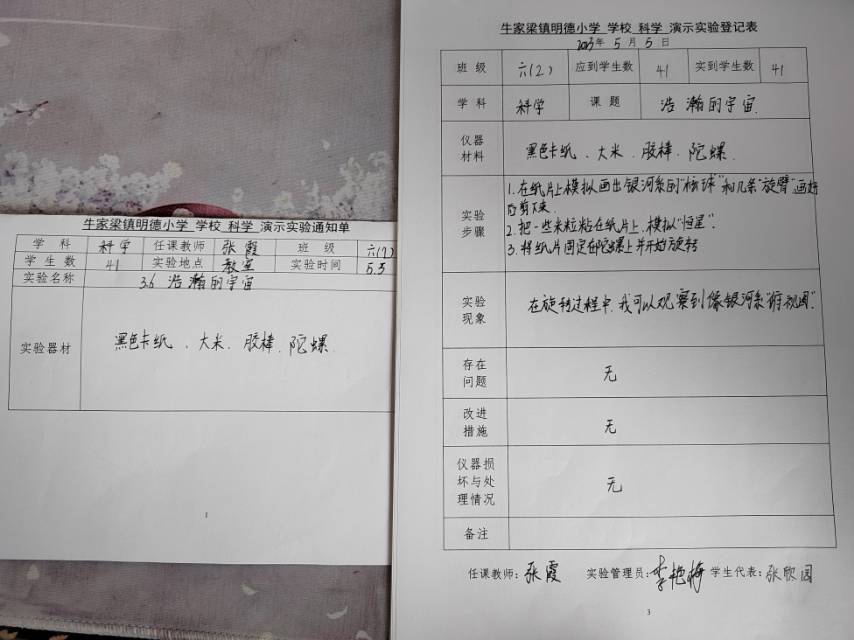 牛家梁镇明德小学 学校 科学 演示实验通知单
学 科 科学 任课教师 张霞 班 级
学 生 数 41 实验地点 教室 实验时间 5.5
实验名称 3.6 浩瀚的宇宙
实验器材 黑色卡纸、大米、胶棒、陀螺
1
牛家梁镇明德小学 学校 科学 演示实验登记表
2023年 5 月 5 日
班 级 六(2) 应到学生数 41 实到学生数 41
学 科 科学 课 题 浩瀚的宇宙
仪器
材料
黑色卡纸、大米、胶棒、陀螺
实验
步骤
1.在纸片上模拟画出银河系的"核球"和几条"旋臂"画好
后剪下来.
2.把一些米粒粘在纸片上,模拟"恒星".
3.将纸片固定在陀螺上并开始旋转
实验
现象
在旋转过程中,我可以观察到像银河系"俯视图".
存在
问题
无
改进
措施
无
仪器损
坏与处
理情况
无
备注
任课教师: 张霞 实验管理员: 李艳梅 学生代表: 张欣园
3